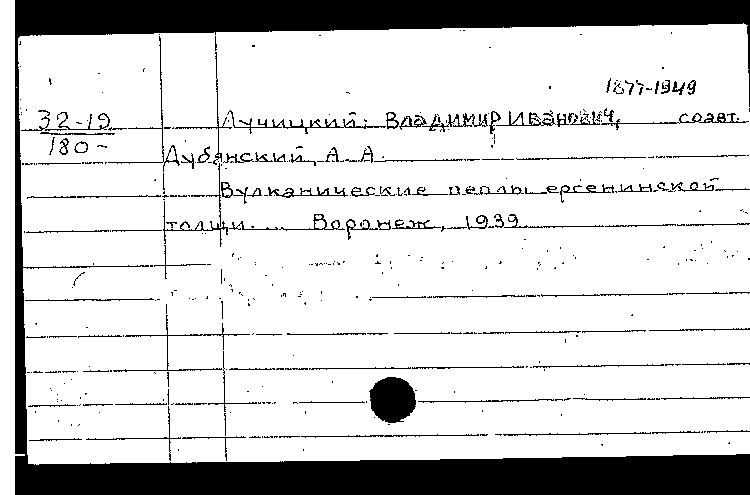 1877-1949
32-19
180-
Лучицкий, Владимир Иванович, соавт.
Дубянский, А. А.
Вулканические пеплы ергенинской
толщи ... Воронеж, 1939